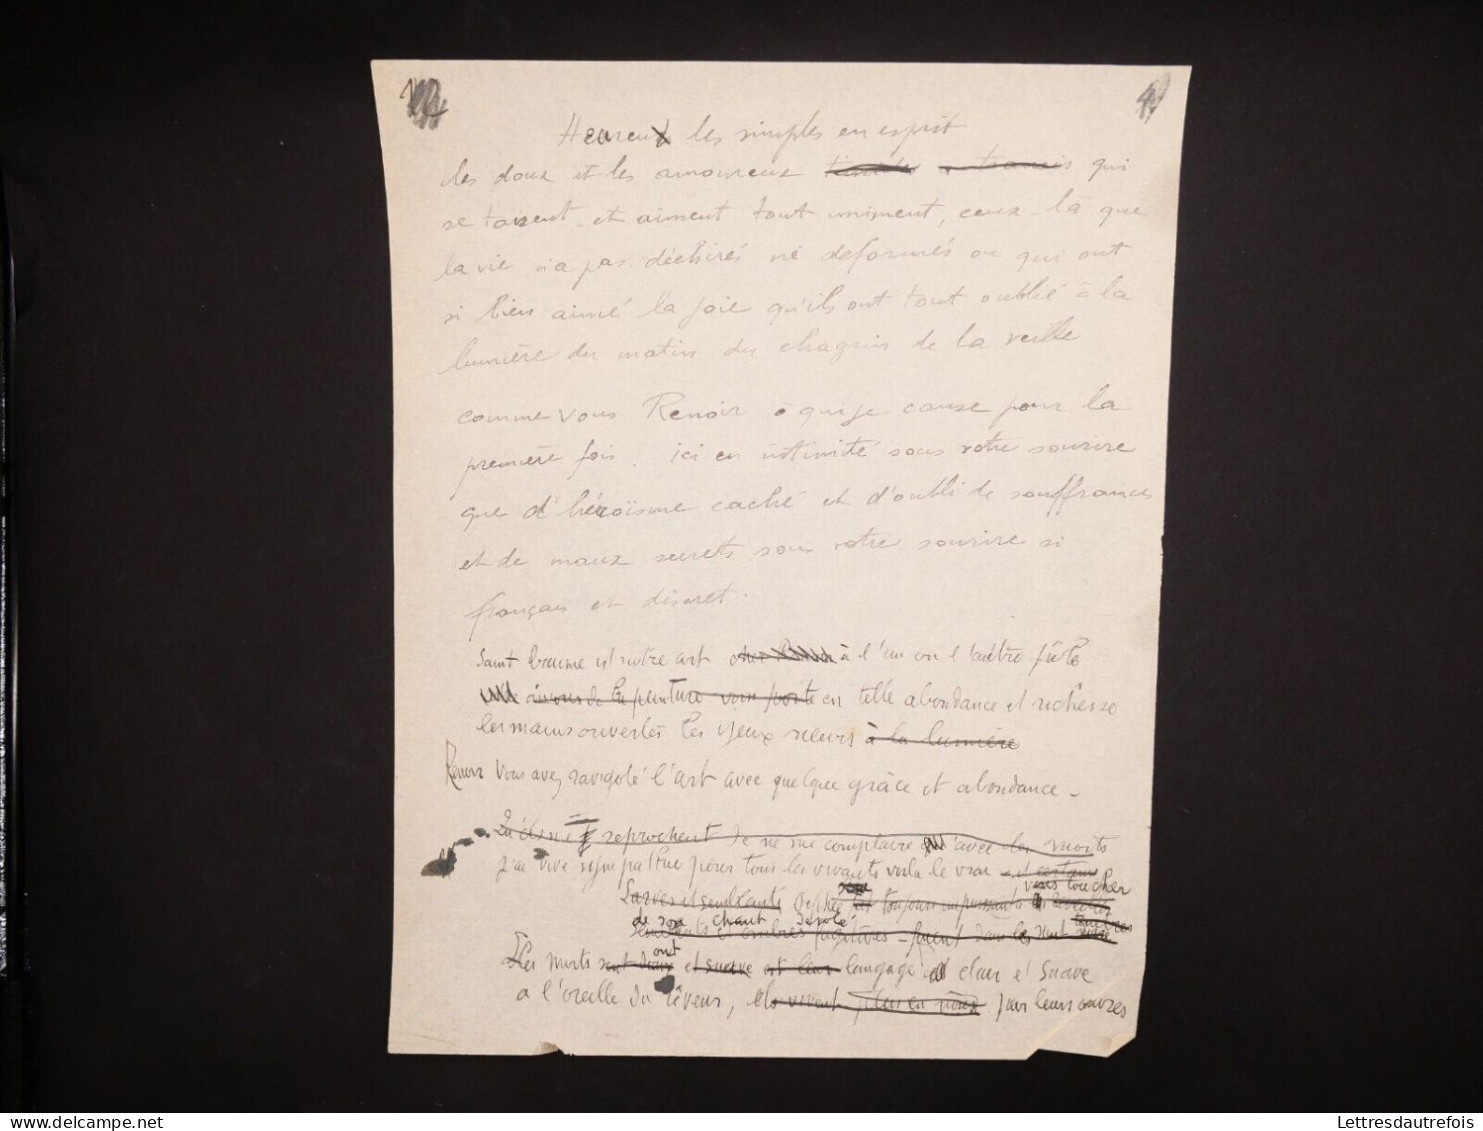 Heureux les simples en esprit
les doux et les amoureux qui
se taisent et aiment tout uniment, ceux-là que
la vie n'a pas déchirés ni deformés ou qui ont
si bien aimé la joie qu'ils ont tout oublié à la
lumière du matin du chagrin de la veille
comme vous Renoir à qui je cause pour la
première fois. ici en intimité sous votre sourire
que d'héroïsme caché et d'oubli de souffrances
et de maux secrets sous votre sourire si
français et discret.
Saint baume est notre art à l'un ou l'autre
de la peinture en telle abondance et richesse
les mains ouvertes les yeux à la lumière
Renoir vous avez ravigoté l'art avec quelque grâce et abondance -
reprochent de ne me complaire qu'avec les morts
j'ai vivants voilà le vrai et certain
vous toucher
Larves et semblants toujours
de son chant désolé ténèbres
et ombres fugitives - dans les
ont
Les morts sont doux et suave et leur langage clair et suave
a l'oreille du rêveur, ils vivent par leurs œuvres
Lettresdautrefois